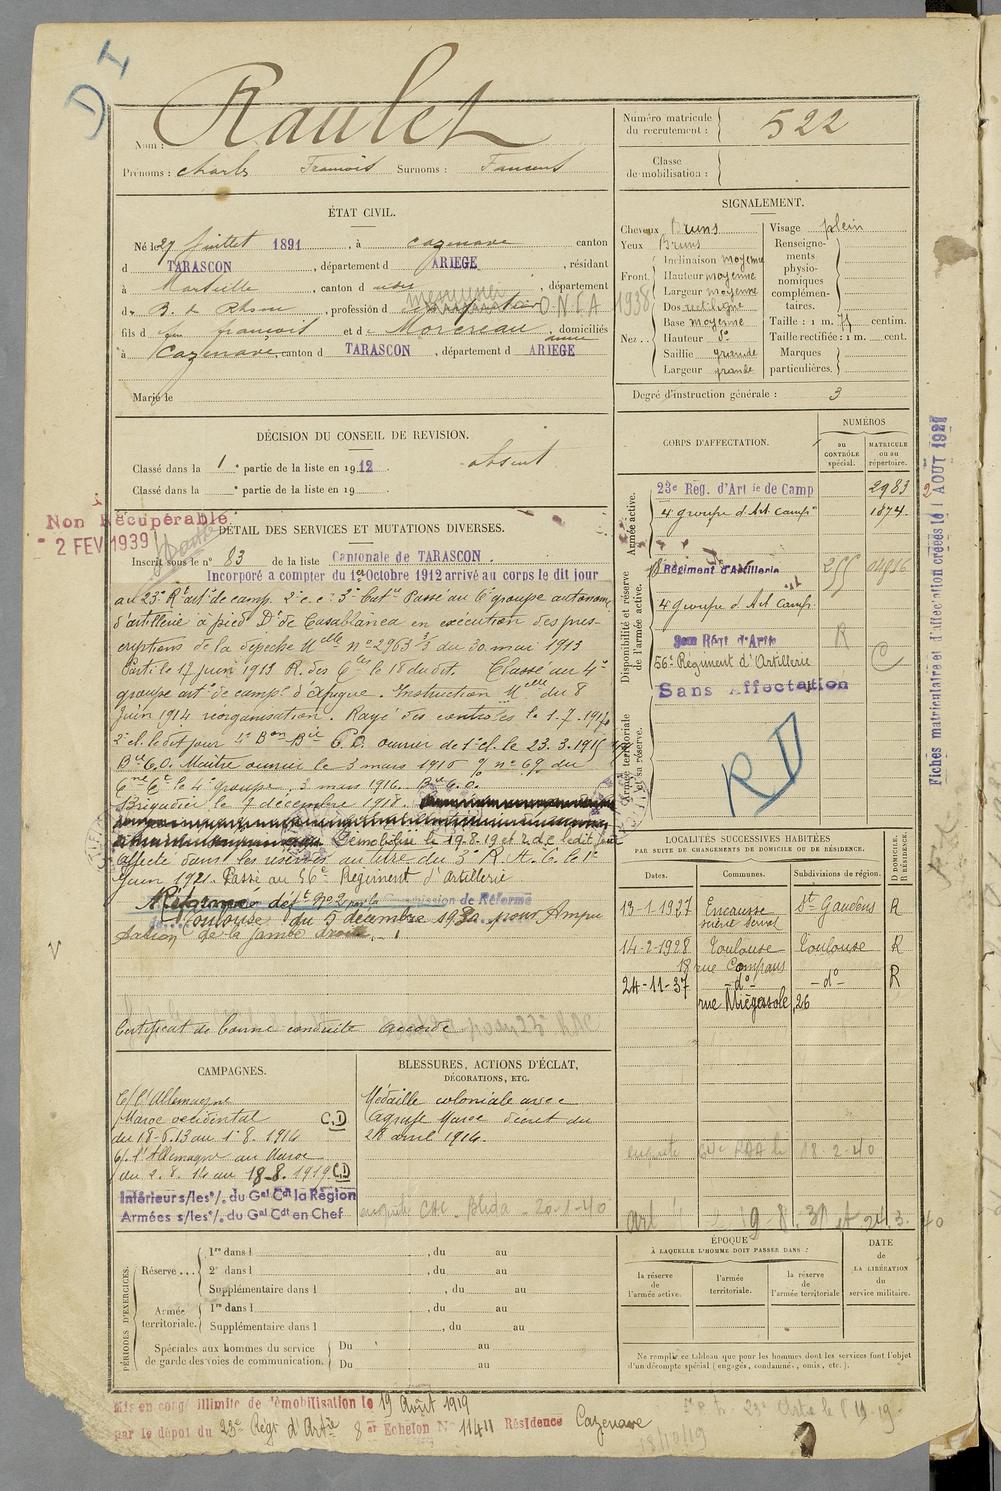 D I
Nom : Raulet
Prénoms : Charles François Surnoms : Faucens
Numéro matricule du recrutement : 522
Classe de mobilisation :
ÉTAT CIVIL.
Né le 27 Juillet 1891, à Cazenave canton
d TARASCON, département d ARIEGE, résidant
à Marseille, canton d udit, département
d B. d Rhone, profession d menuisier O.N.F.A 1938
fils d feu françois et d Morereau anne, domiciliés
à Cazenave, canton d TARASCON, département d ARIEGE
Marié le
SIGNALEMENT.
Cheveux Bruns
Yeux Bruns
Front Inclinaison moyenne
Hauteur moyenne
Largeur moyenne
Nez Dos rectiligne
Base moyenne
Hauteur d°
Saillie grande
Largeur grande
Visage plein
Renseignements physionomiques complémentaires.
Taille : 1 m. 71 centim.
Taille rectifiée : 1 m. cent.
Marques particulières.
Degré d'instruction générale : 3
DÉCISION DU CONSEIL DE REVISION.
Classé dans la 1e partie de la liste en 1912. absent
Classé dans la e partie de la liste en 19
Non Récupérable
2 FEV 1939
DÉTAIL DES SERVICES ET MUTATIONS DIVERSES.
Inscrit sous le n° 83 de la liste Cantonale de TARASCON.
Incorporé a compter du 1er Octobre 1912 arrivé au corps le dit jour
au 23e Rt art de camp. 2e c.c. 3e Bat ie Passé au 6e groupe autonome
d'artillerie à pied Dt de Casablanca en exécution des pres-
criptions de la dépêche Mlle n° 2963 3/3 du 30 mai 1913
Parti le 17 juin 1913 R. des Ctes le 18 du dit. Classé au 4e
groupe art de camp. d'Afrique. Instruction Mlle du 8
Juin 1914 réorganisation. Rayé des controles le 1.7.1914
2e cl. le dit jour Bon Bie C.O. ouvrier de 1e cl. le 23.3.1915
Bie C.O. Maitre ouvrier le 3 mars 1916 % n° 69 du
le 4e groupe, 3 mars 1916. Bie C.O.
Brigadier le 7 décembre 1918.
Démobilisé le 19.8.19 et R.d.C. le dit jour
affecté dans les réserves au titre du 3e R.A.C. le 1er
Juin 1921. Passé au 56e Régiment d'artillerie
Réformé déft N°2 par la Commission de Réforme
de Toulouse du 5 décembre 1932 pour Ampu
tation de la jambe droite.
Certificat de bonne conduite accordé
CORPS D'AFFECTATION.
NUMÉROS
au CONTRÔLE spécial.
MATRICULE ou au répertoire.
Armée active.
23e Rég. d'Art ie de Camp 2983
4 groupe d'Art Camp 1874
Disponibilité et réserve de l'armée active.
Régiment d'Artillerie
4 groupe d'Art Camp.
3em Régt d'Artie R
56e Régiment d'Artillerie C
Sans Affectation
Armée territoriale et sa réserve.
RD
Fiches matriculaire et d'affectation créées le 1 AOUT 1927
LOCALITÉS SUCCESSIVES HABITÉES
PAR SUITE DE CHANGEMENTS DE DOMICILE OU DE RÉSIDENCE.
Dates. Communes. Subdivisions de région. D DOMICILE. R RÉSIDENCE.
13-1-1927 Encausse St Gaudens R
14-2-1928 Toulouse Toulouse R
18 rue Compans
24-11-37 -d°- -d°- R
rue Miégessole, 26
CAMPAGNES.
C/ l'Allemagne
Maroc occidental C.D
du 18-6-13 au 1-8-1914
C/. l'Allemagne au Maroc
du 2.8.14 au 18-8-1919 C.D
Intérieur s/les °/. du Gal Cdt la Région
Armées s/les °/. du Gal Cdt en Chef
BLESSURES, ACTIONS D'ÉCLAT,
DÉCORATIONS, ETC.
Médaille coloniale avec
Agrafe Maroc décret du
28 avril 1914.
enquête CAC Blida 20-1-40
enquête 18-2-40
PÉRIODES D'EXERCICES.
Réserve... 1re dans l , du au
2e dans l , du au
Supplémentaire dans l , du au
Armée territoriale. 1re dans l , du au
Supplémentaire dans l , du au
Spéciales aux hommes du service de garde des voies de communication. Du au
Du au
ÉPOQUE
À LAQUELLE L'HOMME DOIT PASSER DANS :
la réserve de l'armée active.
l'armée territoriale.
la réserve de l'armée territoriale
DATE de LA LIBÉRATION du service militaire.
Ne remplir ce tableau que pour les hommes dont les services font l'objet
d'un décompte spécial (engagés, condamnés, omis, etc.).
Mis en congé illimité de démobilisation le 19 Août 1919
par le dépôt du 23e Régt d'Artie 8 er Echelon N° 11411 Résidence Cazenave
18/10/19